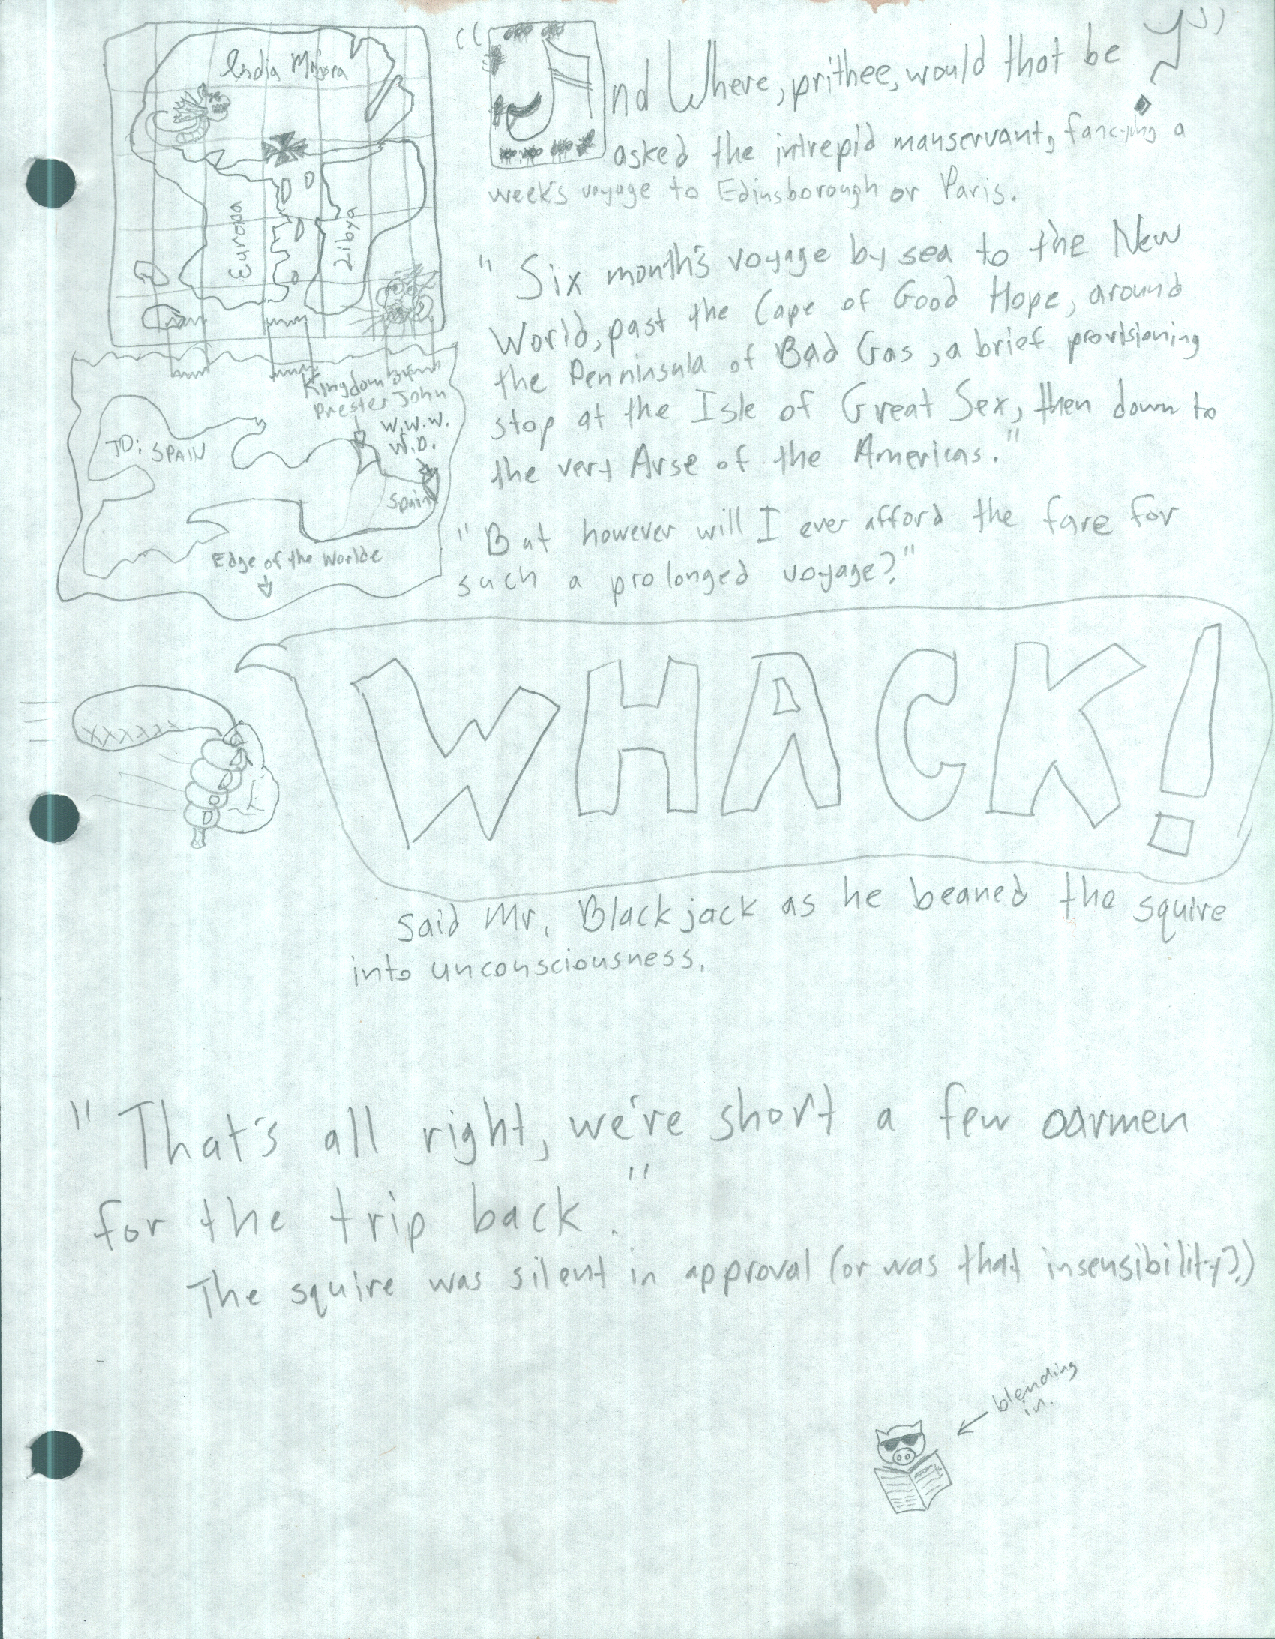 India Minora
Europa
Libya
Kingdom of
Prester John
W.W.W.
W.D.
TO: SPAIN
Spain
Edge of the Worlde
"And Where, prithee, would that be?"
asked the intrepid manservant, fancying a
week's voyage to Edinsborough or Paris.
"Six month's voyage by sea to the New
World, past the Cape of Good Hope, around
the Penninsula of Bad Gas, a brief provisioning
stop at the Isle of Great Sex, then down to
the very Arse of the Americas."
"But however will I ever afford the fare for
such a prolonged voyage?"
WHACK!
said Mr. Blackjack as he beaned the squire
into unconsciousness.
"That's all right, we're short a few oarmen
for the trip back."
The squire was silent in approval (or was that insensibility?)
blending
in.